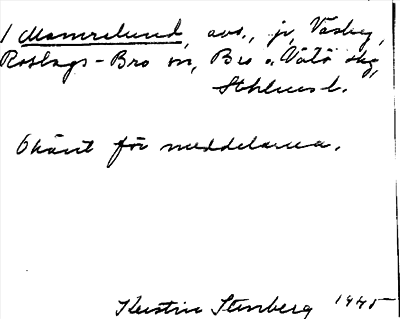 1 Mamrelund, avs., jr, Väsby,
Roslags-Bro sn, Bro o. Vätö skg,
Sthlms l.
Okänt för meddelarna.
Kerstin Stenberg 1945